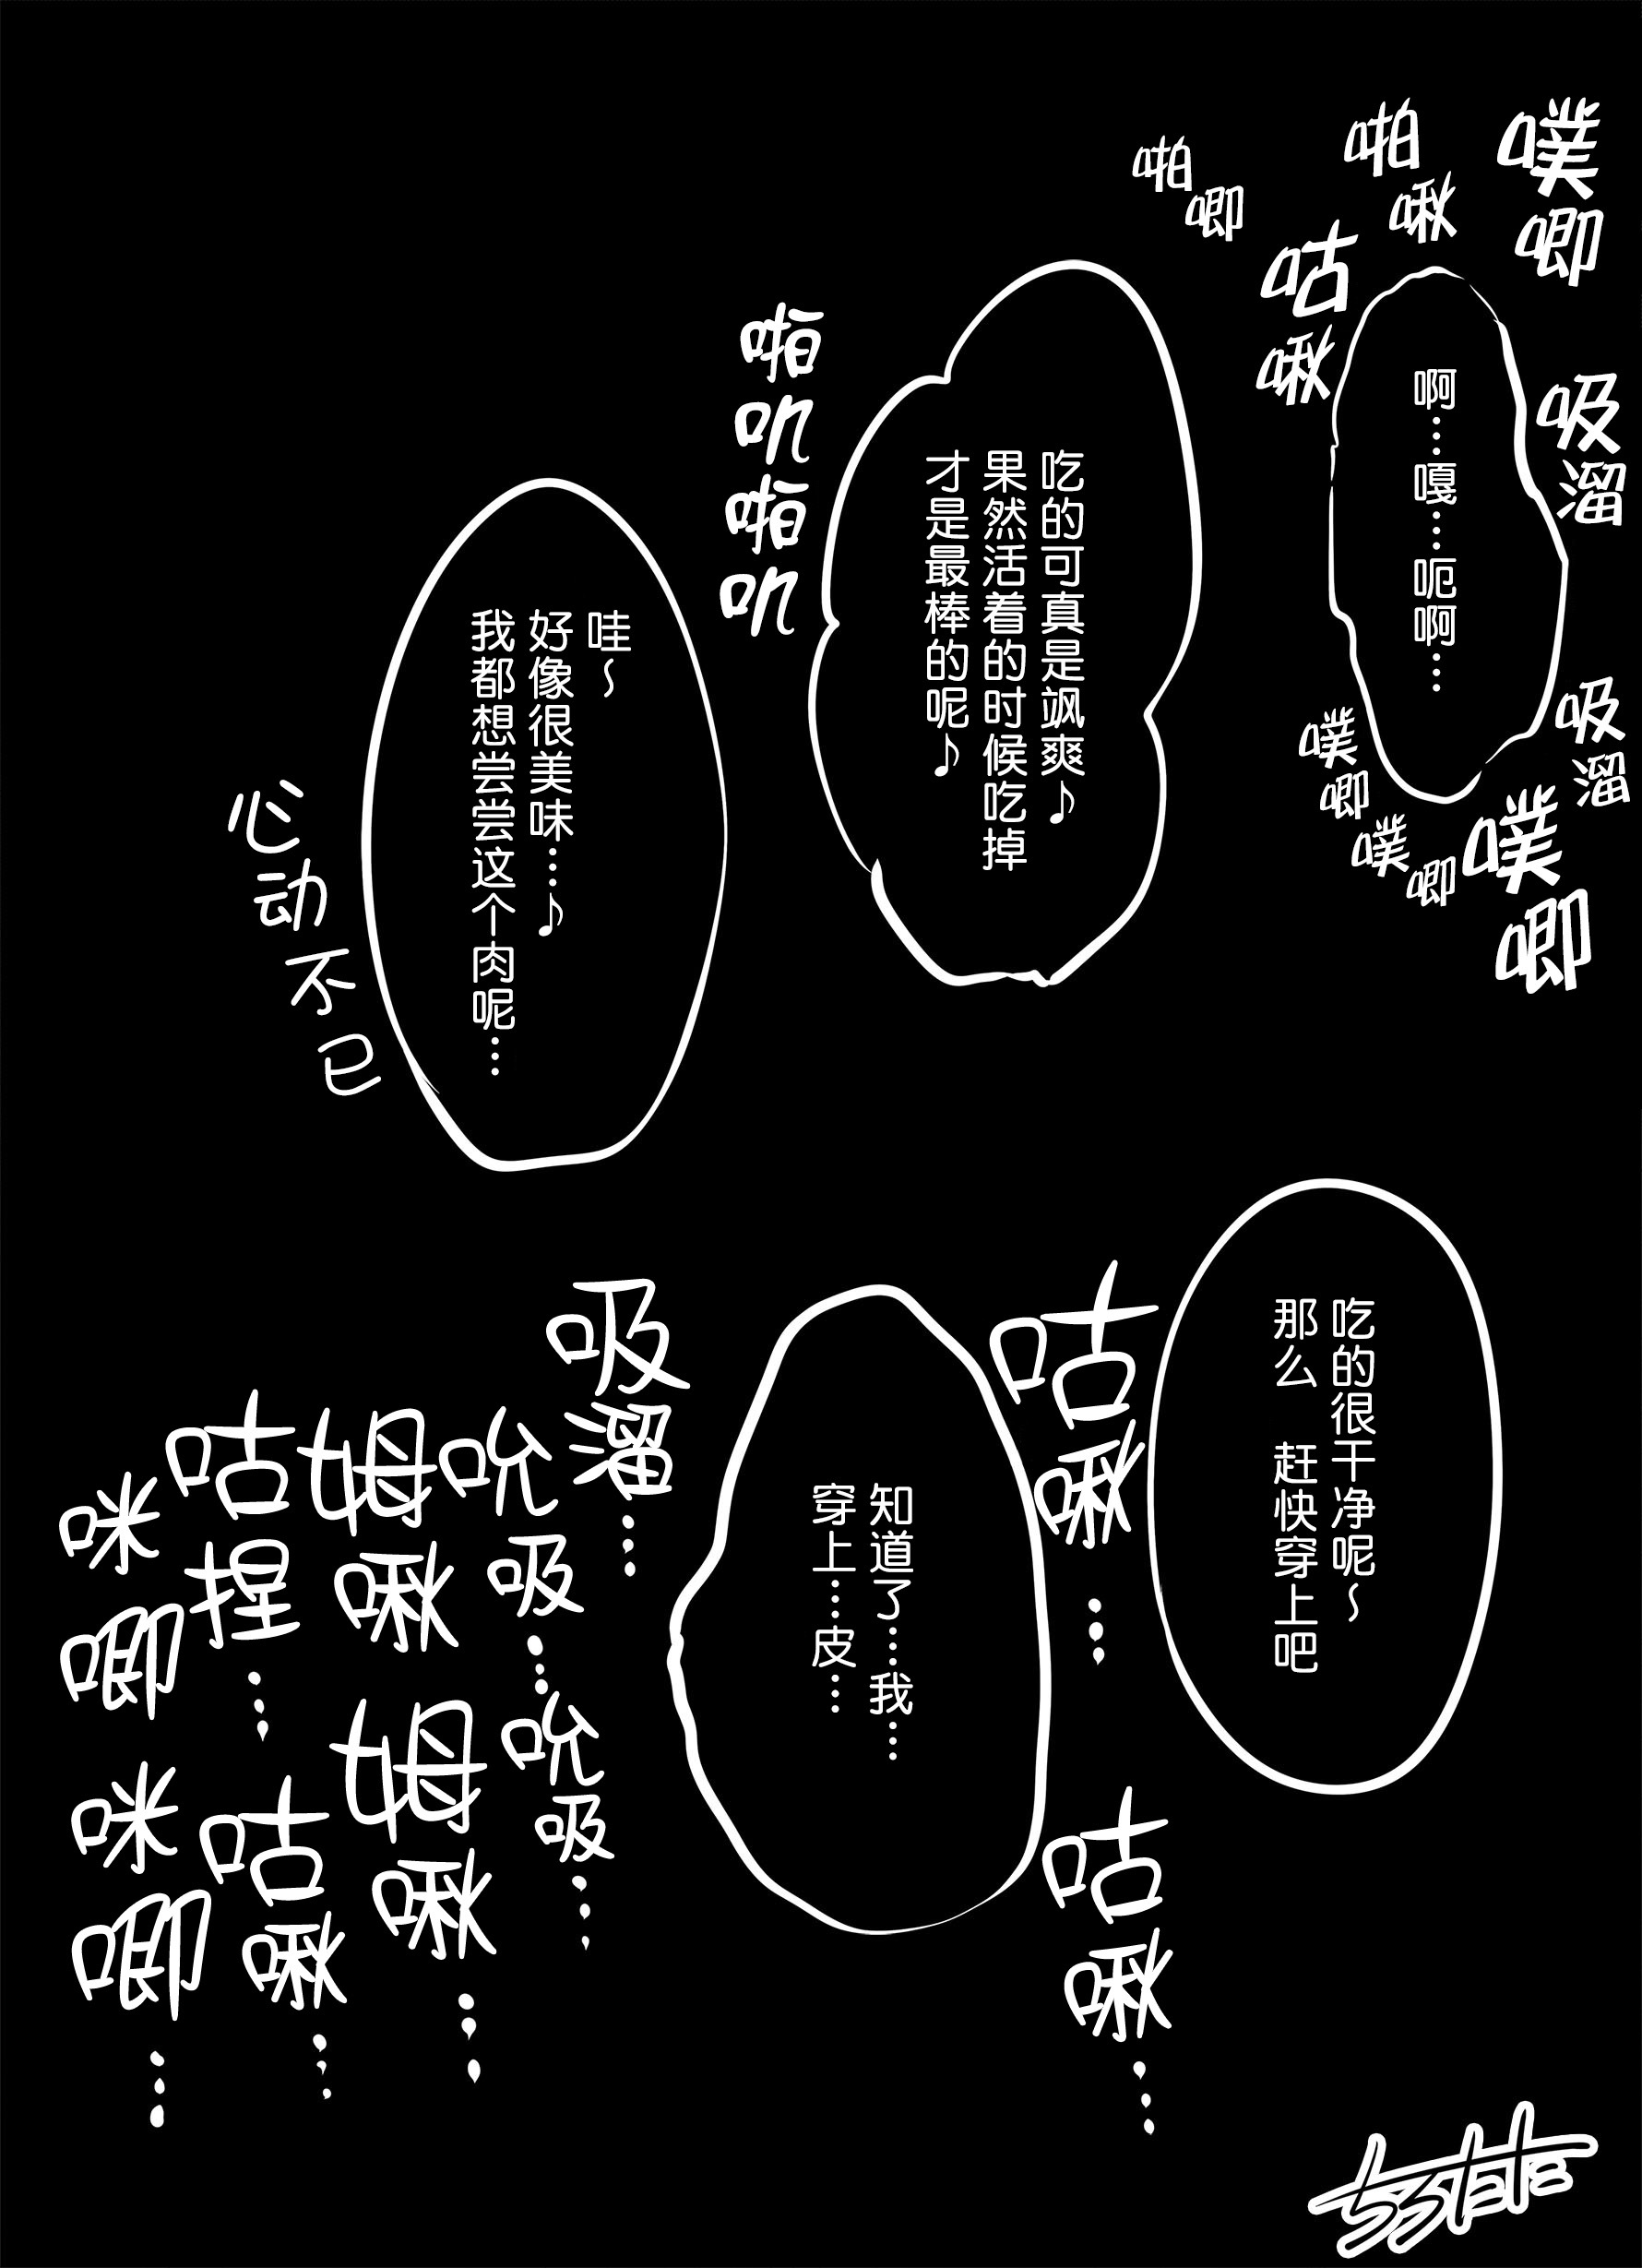 噗唧
啪啾
啪唧
咕啾
吸溜
啊……嘎……呃啊……
吸溜
噗唧
噗唧
噗唧
吃的可真是飒爽♪
果然活着的时候吃掉
才是最棒的呢♪
哇～
好像很美味……♪
我都想尝尝这个肉呢…
心动不已
吃的很干净呢～
那么 赶快穿上吧
咕啾…
知道了……我…
穿上……皮…
咕啾…
吸溜…
吮吸…
吮吸…
姆啾
姆啾…
咕捏…
咕啾…
咪唧
咪唧…